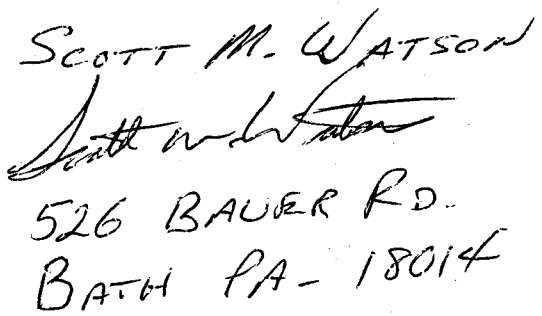 SCOTT M. WATSON
Scott M. Watson
526 BAUER RD.
BATH PA- 18014